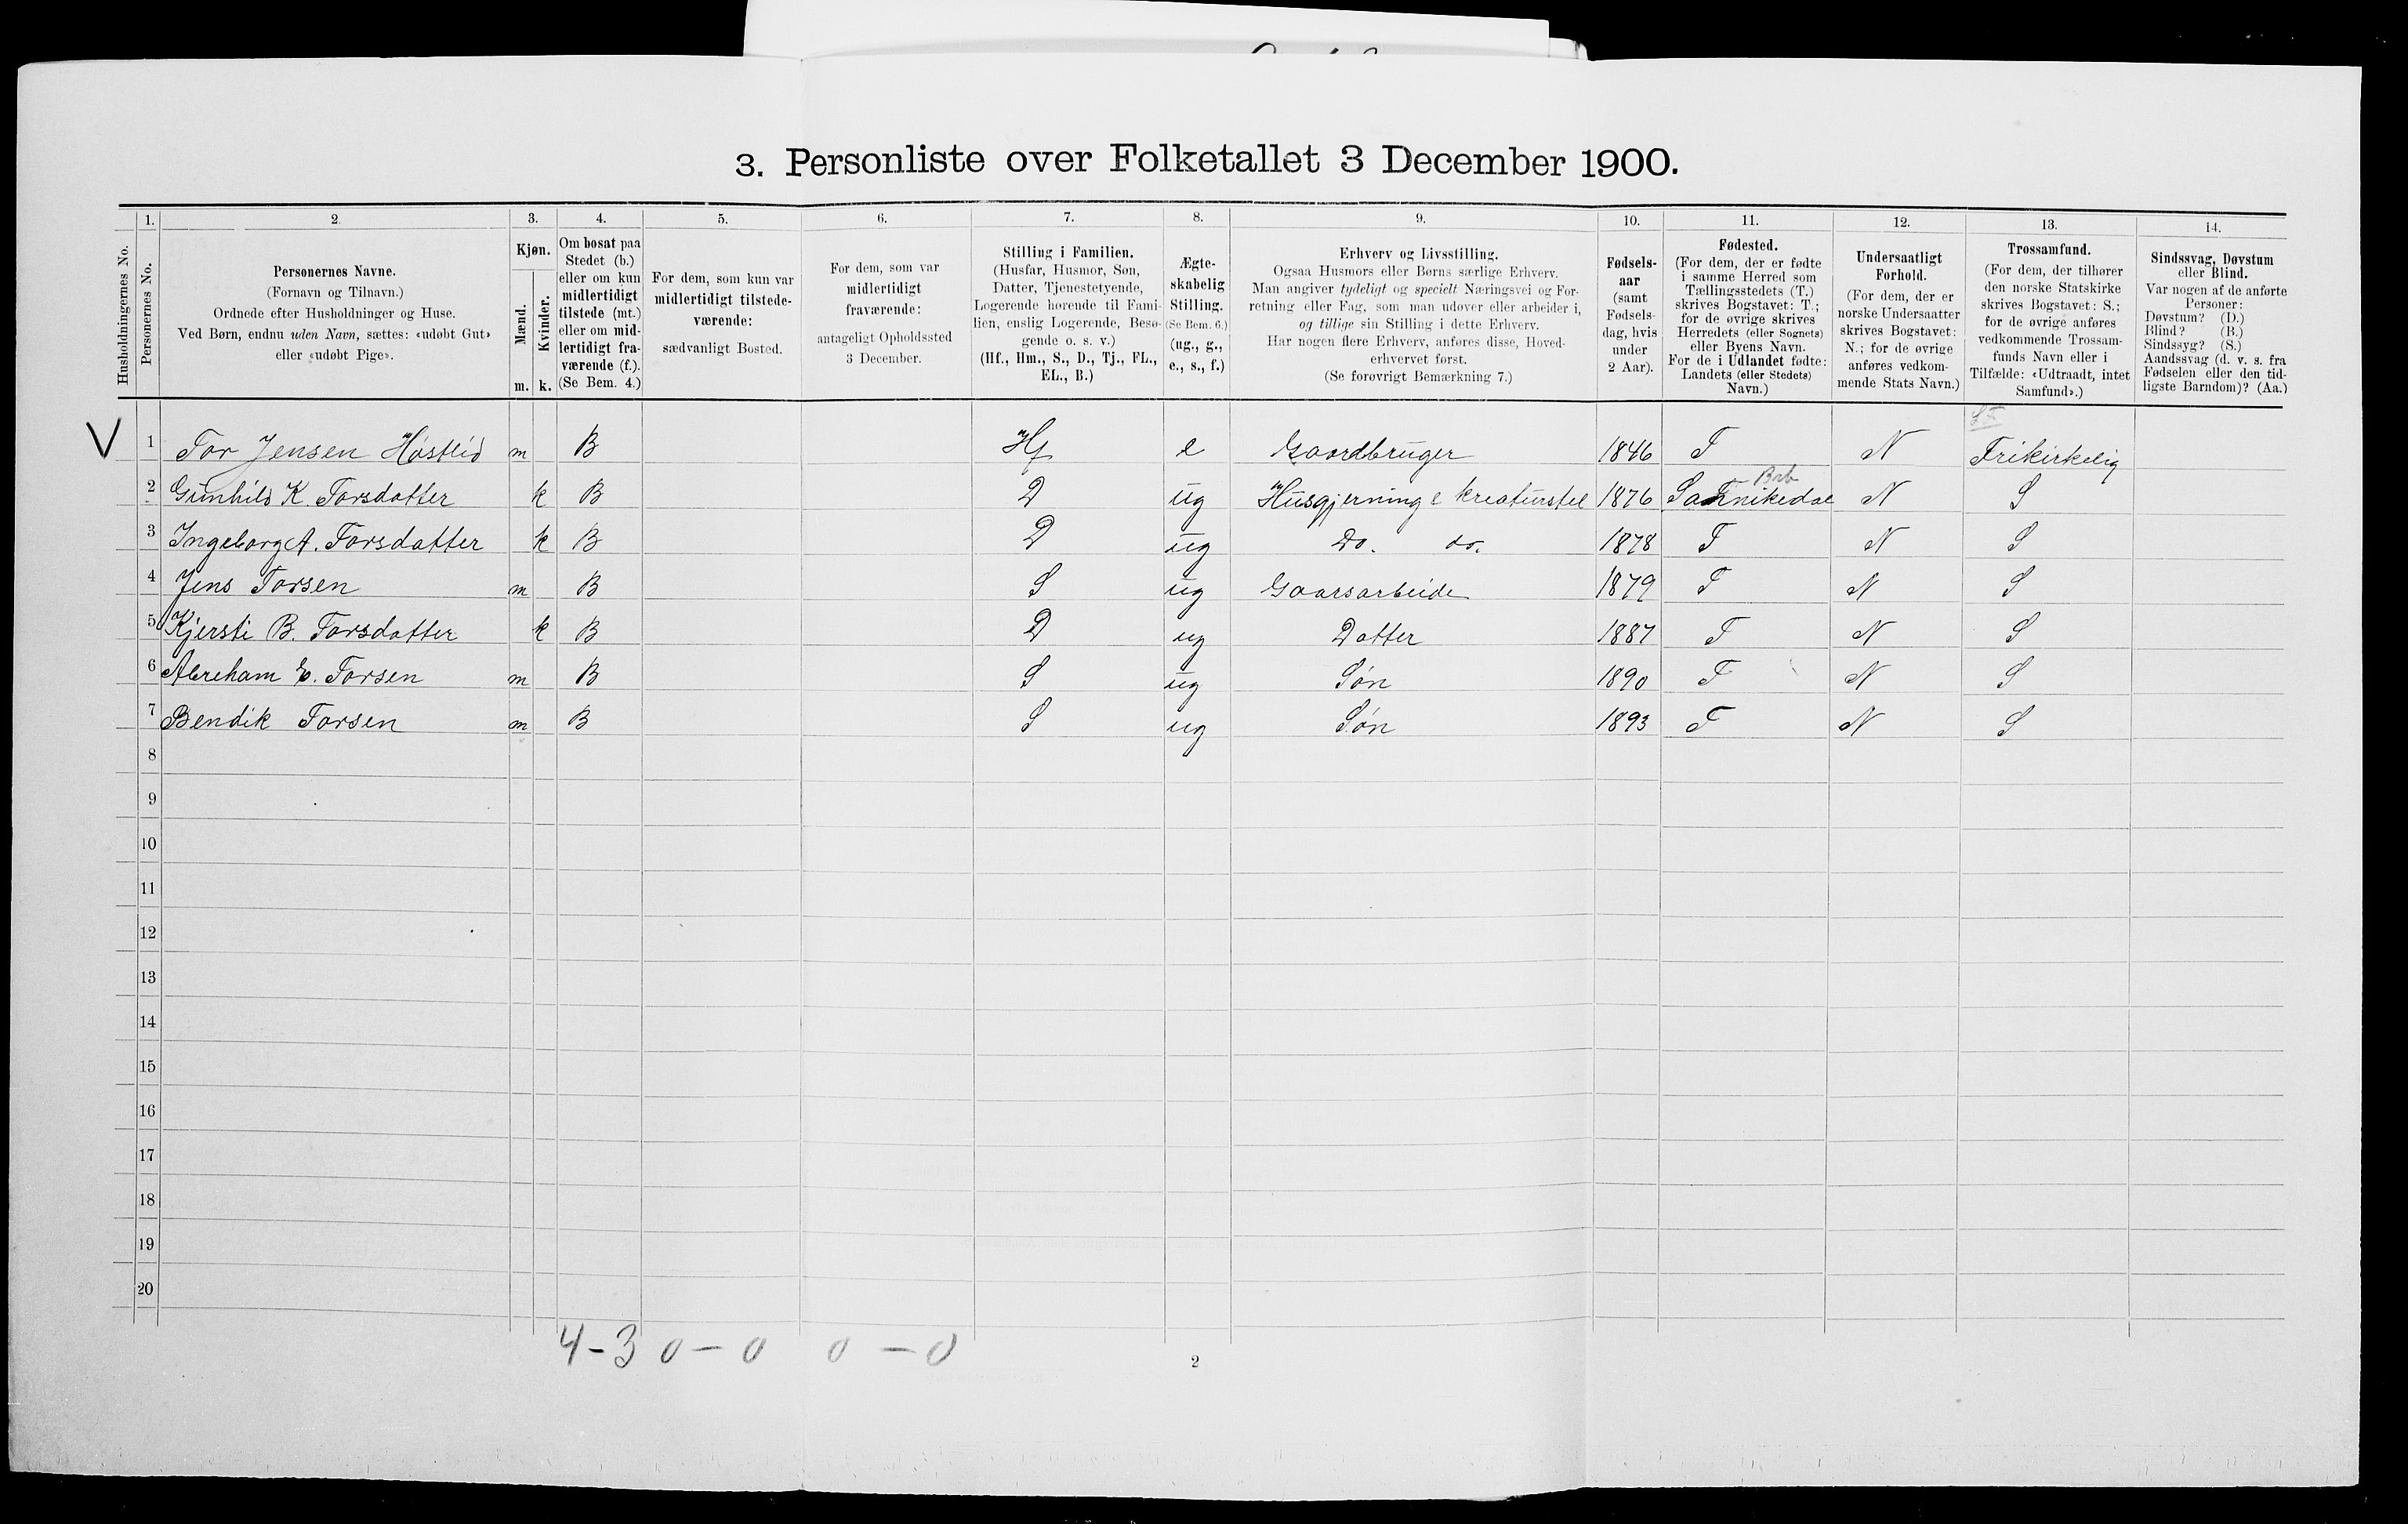 3. Personliste over Folketallet 3 December 1900.
Husholdningernes No.
1. Personernes No.
2. Personernes Navne. (Fornavn og Tilnavn.) Ordnede efter Husholdninger og Huse. Ved Børn, endnu uden Navn, sættes: «udøbt Gut» eller «udøbt Pige».
3. Kjøn. Mænd. m. Kvinder. k.
4. Om bosat paa Stedet (b.) eller om kun midlertidigt tilstede (mt.) eller om midlertidigt fraværende (f.). (Se Bem. 4.)
5. For dem, som kun var midlertidigt tilstedeværende: sædvanligt Bosted.
6. For dem, som var midlertidigt fraværende: antageligt Opholdssted 3 December.
7. Stilling i Familien. (Husfar, Husmor, Søn, Datter, Tjenestetyende, Logerende hørende til Familien, enslig Logerende, Besøgende o. s. v.) (Hf., Hm., S., D., Tj., FL., EL., B.)
8. Ægteskabelig Stilling. (Se Bem. 6.) (ug., g., e., s., f.)
9. Erhverv og Livsstilling. Ogsaa Husmors eller Børns særlige Erhverv. Man angiver tydeligt og specielt Næringsvei og Forretning eller Fag, som man udøver eller arbeider i, og tillige sin Stilling i dette Erhverv. Har nogen flere Erhverv, anføres disse, Hovederhvervet først. (Se forøvrigt Bemærkning 7.)
10. Fødselsaar (samt Fødselsdag, hvis under 2 Aar).
11. Fødested. (For dem, der er fødte i samme Herred som Tællingsstedets (T.) skrives Bogstavet: T.; for de øvrige skrives Herredets (eller Sognets) eller Byens Navn. For de i Udlandet fødte: Landets (eller Stedets) Navn.)
12. Undersaatligt Forhold. (For dem, der er norske Undersaatter skrives Bogstavet: N.; for de øvrige anføres vedkommende Stats Navn.)
13. Trossamfund. (For dem, der tilhører den norske Statskirke skrives Bogstavet: S.; for de øvrige anføres vedkommende Trossamfunds Navn eller i Tilfælde: «Udtraadt, intet Samfund».)
14. Sindssvag, Døvstum eller Blind. Var nogen af de anførte Personer: Døvstum? (D.) Blind? (B.) Sindssyg? (S.) Aandssvag (d. v. s. fra Fødselen eller den tidligste Barndom)? (Aa.)
V 1 Tor Jensen Høstlid m B Hf e Gaardbruger 1846 T N Frikirkelig
2 Gunhild K. Torsdatter k B D ug Husgjerning & Kreaturstel 1876 N S
3 Ingeborg A. Torsdatter k B D ug Do. do. 1878 T N S
4 Jens Torsen m B S ug Gaarsarbeide 1879 T N S
5 Kjersti B. Torsdatter k B D ug Datter 1887 T N S
6 Abreham E. Torsen m B S ug Søn 1890 T N S
7 Bendik Torsen m B S ug Søn 1893 T N S
8
9
10
11
12
13
14
15
16
17
18
19
20
4-3 0-0 0-0
2